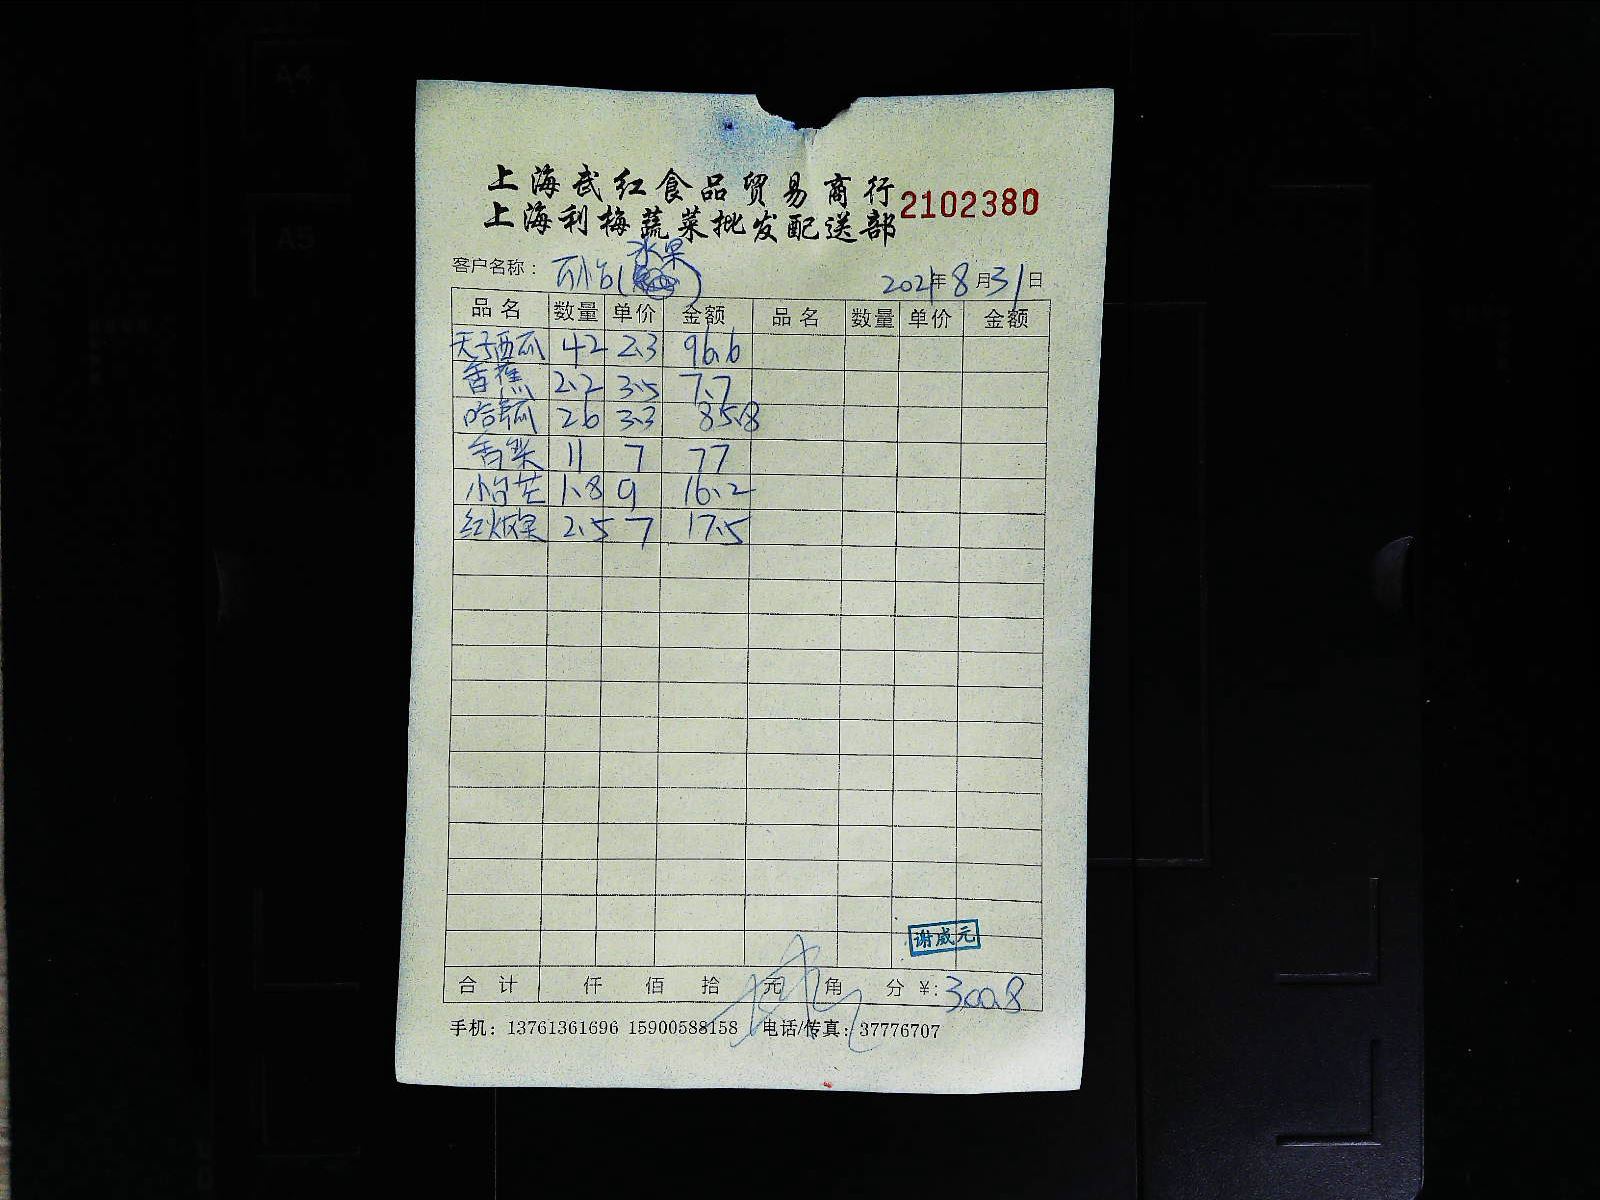 上海武红食品贸易商行
上海利梅蔬菜批发配送部
2102380
客户名称： (水果) 2021年8月31日
品名 数量 单价 金额 品名 数量 单价 金额
天子西瓜 42 2.3 96.6
香蕉 2.2 3.5 7.7
哈瓜 26 3.3 85.8
香梨 11 7 77
小台芒 1.8 9 16.2
红火龙果 2.5 7 17.5
谢威元
合计 仟 佰 拾 元 角 分 ¥: 300.8
手机：13761361696 15900588158 电话/传真：37776707
A4
A5